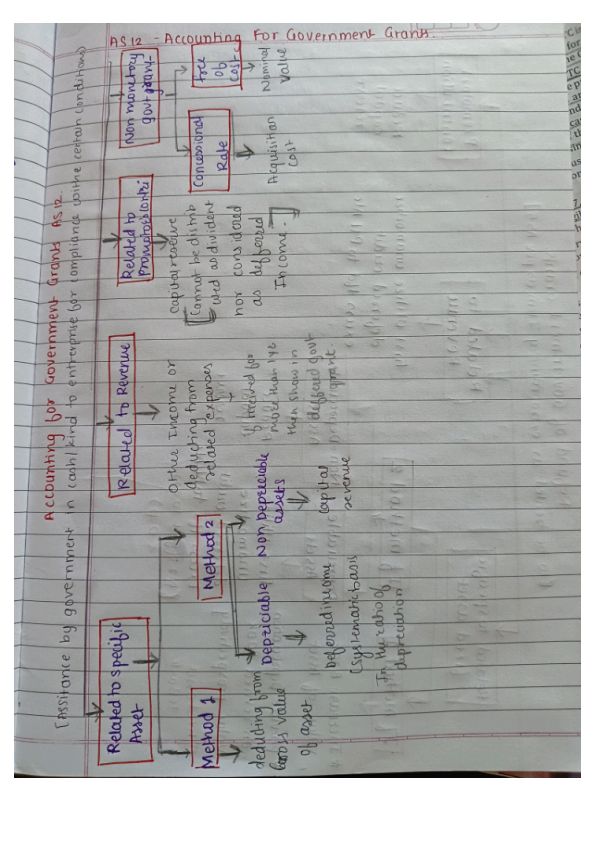 AS 12 - Accounting For Government Grants.
Accounting for Government Grants AS 12.
(Assitance by government in cash/kind to enterprise for compliance withe certain conditions)
Related to specific
Asset
Method 1
deducting from
Gross value
of asset
Method 2
Depriciable
Deferred income
(Systematic basis
In the ratio of
depreciation)
Non Depriciable
assets
Capital
revenue
Related to Revenue
Other Income or
deducting from
related expenses
If received for
more than 1 yr
then show in
deffered govt
grant.
Related to
Promotors contri
capital reserve
[Cannot be distrib
uted as divident
nor considered
as defferred
Income.]
Non monetory
govt grant
Free
of
cost
Nominal
value
Concessional
Rate
Acquisition
cost